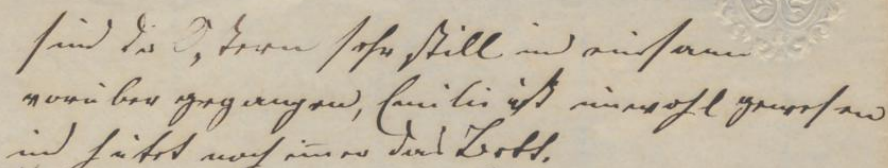 sind die Ostern sehr still und einsam
vorüber gegangen, Emilie ist unwohl gewesen
und hütet noch immer das Bett.